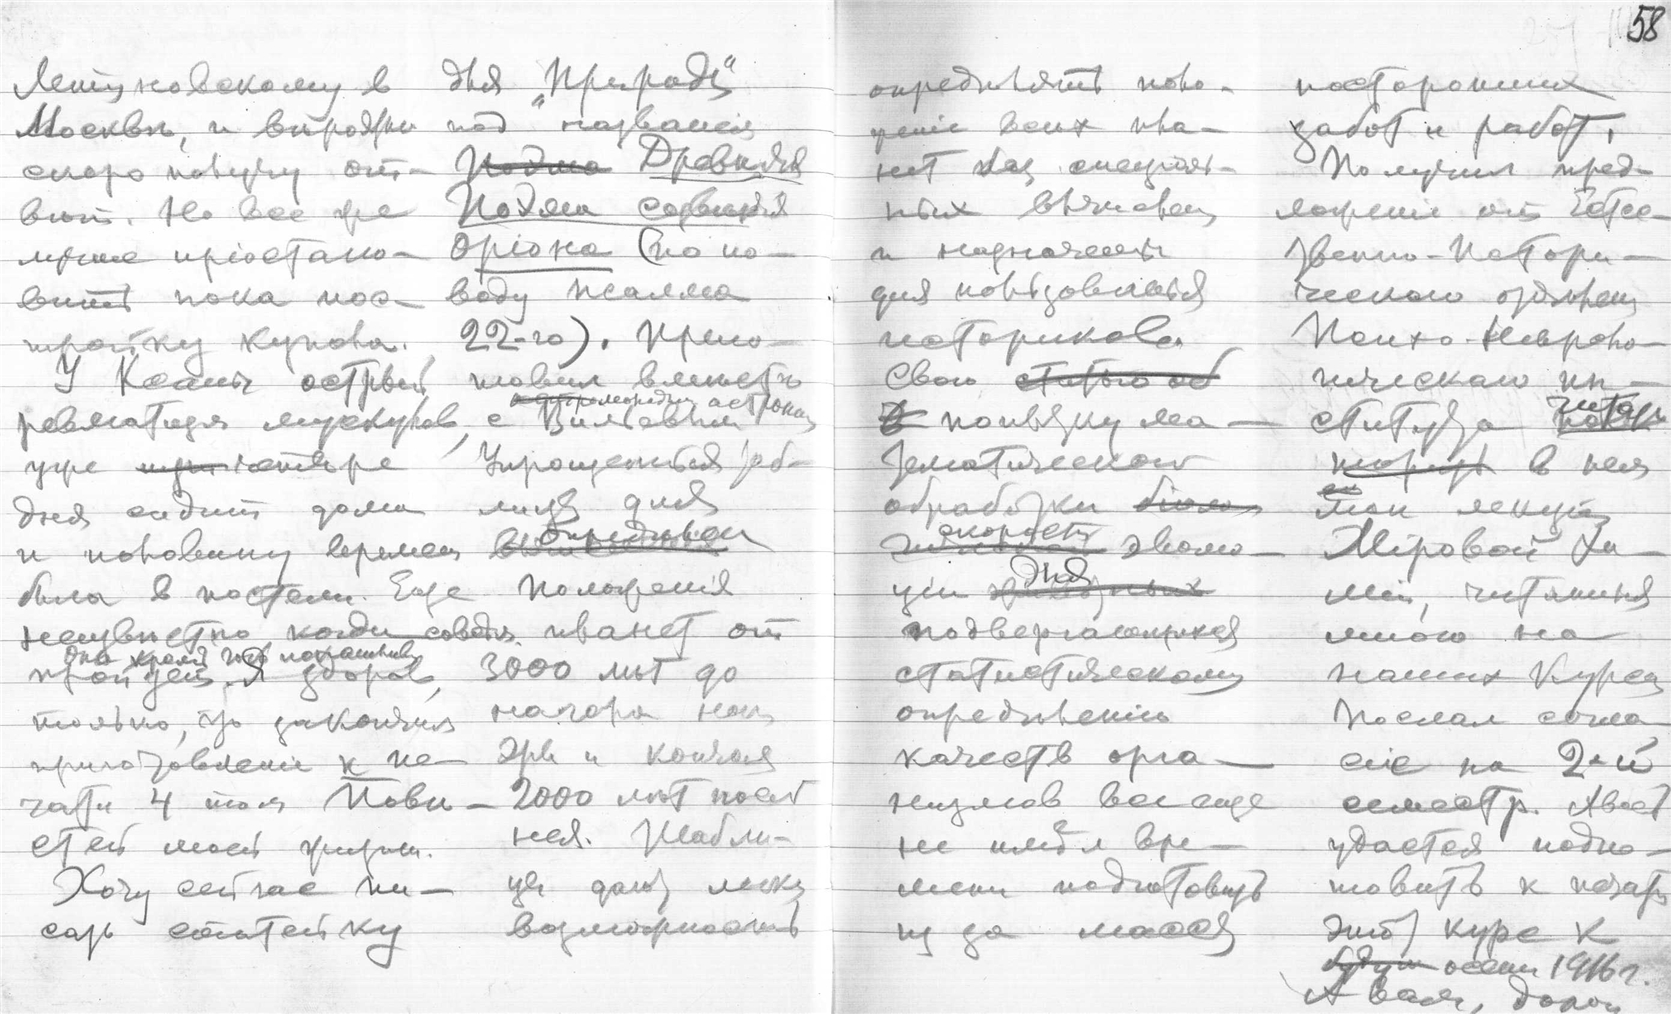 58
Лещновскому в
Москвѣ, и вѣроятно
скоро получу от-
вѣт. Но все же
лучше пріостано-
вить пока пос-
тройку купола.
У Ксаны острый
ревматизм мускулов,
уже четыре
дня сидит дома
и половину времени
была в постели. Еще
неизвѣстно, когда совсѣм
пройдет. Я здоров,
только, что закончил
приготовленіе к пе-
чати 4 том Повѣ-
стей моей жизни.
Хочу сейчас пи-
сать статейку
для „Природы“
под названіем
Древняя
Поэма созвѣздія
Оріона (по по-
воду псалма
22-го). Приго-
товил вмѣстѣ
астроном
с Вильевым
Упрощенныя таб-
лицы для
опредѣленія
положенія
планет от
3000 лѣт до
начала наш
эры и кончая
2000 лѣт послѣ
нея. Таблицы
дают
возможность
опредѣлять поло-
женіе всѣх пла-
нет без спеціаль-
ных вычислен
и назначены
для пользованія
историков.
Свою
попытку ма-
тематической
обработки
скорости эволю-
ціи
подвергающихся
статистическому
опредѣленію
качеств орга-
низмов все еще
не имѣл вре-
мени подготовить
из за массы
посторонних
забот и работ.
Получил пред-
ложеніе от Есте-
ственно-Истори-
ческаго отдѣлен
Психо-Невроло-
гическаго ин-
ститута читать
в нем
мои лекціи
Міровой Хи-
міи, читанныя
мною на
наших Курсах
Послал согла-
сіе на 2-й
семестр. Авось
удастся подго-
товить к печати
этот курс к
осени 1916 г.
А Вам, дорог